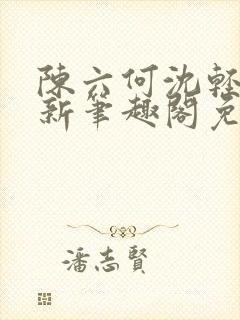 陳六何沈輕
新筆趣閣免
潘志賢